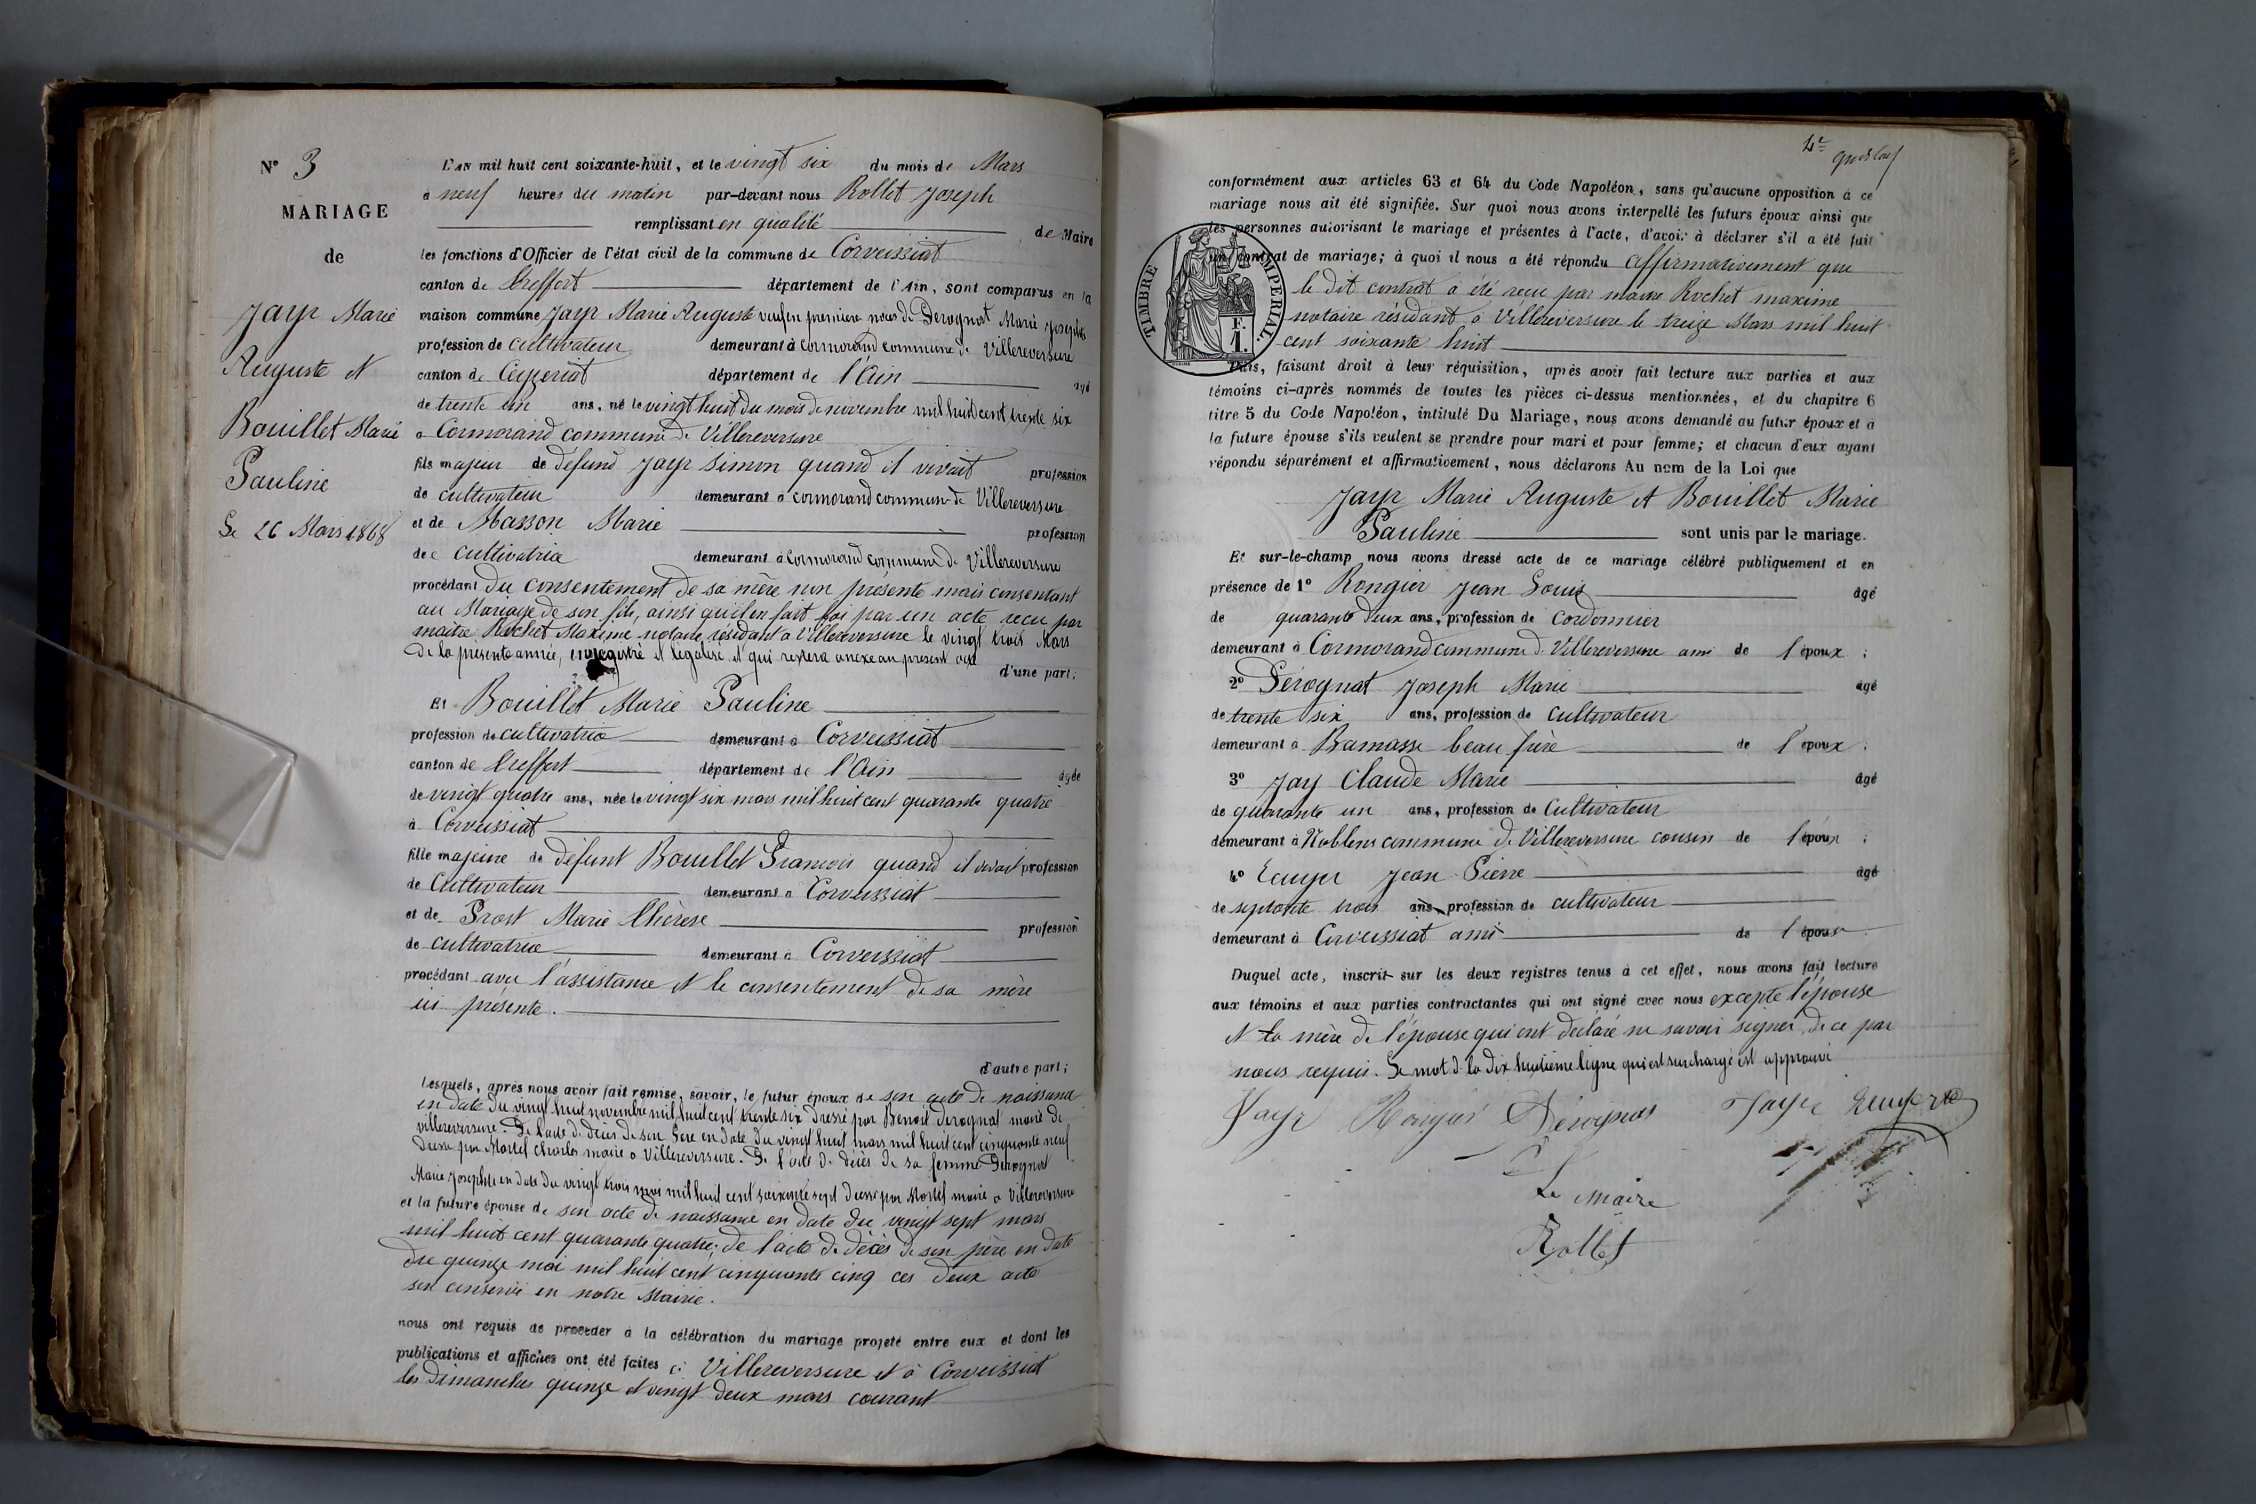 N° 3
MARIAGE
de
Jayr Marie
Auguste et
Bouillet Marie
Pauline
Le 26 Mars 1868
L'an mil huit cent soixante-huit, et le vingt six du mois de Mars
à neuf heures du matin par-devant nous Rollet Joseph
remplissant en qualité de Maire
les fonctions d'Officier de l'état civil de la commune de Corveissiat
canton de Treffort département de l'Ain, sont comparus en la
maison commune Jayr Marie Auguste veuf en première noces de Derognat Marie Josephte
profession de cultivateur demeurant à Cormorand commune de Villereversure
canton de Ceyzeriat département de l'Ain âgé
de trente un ans, né le vingt huit du mois de novembre mil huit cent trente six
à Cormorand commune de Villereversure
fils majeur de défund Jayr Simon quand il vivait profession
de cultivateur demeurant à Cormorand commune de Villereversure
et de Masson Marie profession
de cultivatrice demeurant à Cormorand commune de Villereversure
procédant du consentement de sa mère non présente mais consentant
au Mariage de son fils, ainsi qu'il en fait foi par un acte recu par
maitre Rochet Maxime notaire résidant à Villereversure le vingt trois Mars
de la presente année, enregistré et légalisé et qui restera anexe au present acte
d'une part;
Et Bouillet Marie Pauline
profession de cultivatrice demeurant à Corveissiat
canton de Treffort département de l'Ain âgée
de vingt quatre ans, née le vingt six mars mil huit cent quarante quatre
à Corveissiat
fille majeure de défunt Bouillet Francois quand il vivait profession
de Cultivateur demeurant à Corveissiat
et de Prost Marie Thérèse profession
de cultivatrice demeurant à Corveissiat
procédant avec l'assistance et le consentement de sa mère
ici présente.
d'autre part;
Lesquels, après nous avoir fait remise, savoir, le futur époux de son acte de naissance
en date du vingt huit novembre mil huit cent trente six dressé par Benoit Derognat maire de
villereversure. De l'acte de décès de son Pere en date du vingt huit mars mil huit cent cinquante neuf
dressé par Martel Charles maire à Villereversure. De l'acte de décès de sa femme Derognat
Marie Josephte en date du vingt trois mai mil huit cent soixante sept dressé par Martel maire à Villereversure
et la future épouse de son acte de naissance en date du vingt sept mars
mil huit cent quarante quatre; de l'acte de décès de son père en date
du quinze mai mil huit cent cinquante cinq ces deux acte
son conservé en notre Mairie.
nous ont requis de procéder à la célébration du mariage projeté entre eux et dont les
publications et affiches ont été faites à Villereversure et à Corveissiat
les dimanches quinze et vingt deux mars courant
4e
conformément aux articles 63 et 64 du Code Napoléon, sans qu'aucune opposition à ce
mariage nous ait été signifiée. Sur quoi nous avons interpellé les futurs époux ainsi que
les personnes autorisant le mariage et présentes à l'acte, d'avoir à déclarer s'il a été fait
un contrat de mariage; à quoi il nous a été répondu affirmativement que
le dit contrat a été recu par maitre Rochet maxime
notaire résidant à Villereversure le treize Mars mil huit
cent soixante huit
TIMBRE IMPERIAL.
F.
1.
Puis, faisant droit à leur réquisition, après avoir fait lecture aux parties et aux
témoins ci-après nommés de toutes les pièces ci-dessus mentionnées, et du chapitre 6
titre 5 du Code Napoléon, intitulé Du Mariage, nous avons demandé au futur époux et à
la future épouse s'ils veulent se prendre pour mari et pour femme; et chacun d'eux ayant
répondu séparément et affirmativement, nous déclarons Au nom de la Loi que
Jayr Marie Auguste et Bouillet Marie
Pauline sont unis par le mariage.
Et sur-le-champ nous avons dressé acte de ce mariage célébré publiquement et en
présence de 1° Rongier Jean Louis âgé
de quarante deux ans, profession de Cordonnier
demeurant à Cormorand commune de Villereversure ami de l'époux;
2° Dérognat Joseph Marie âgé
de trente six ans, profession de cultivateur
demeurant à Ramasse beau frère de l'époux;
3° Jay Claude Marie âgé
de quarante un ans, profession de Cultivateur
demeurant à Noblens commune de Villereversure cousin de l'époux;
4° Ecuyer Jean Pierre âgé
de septante trois ans, profession de cultivateur
demeurant à Corveissiat ami de l'époux
Duquel acte, inscrit sur les deux registres tenus à cet effet, nous avons fait lecture
aux témoins et aux parties contractantes qui ont signé avec nous excepté l'épouse
et la mère de l'épouse qui ont déclaré ne savoir signer, de ce par
nous requis. Le mot de la dix huitième ligne qui est surchargé est approuvé
Jayr Rongier Dérognat Jayr Ecuyer
Le Maire
Rollet